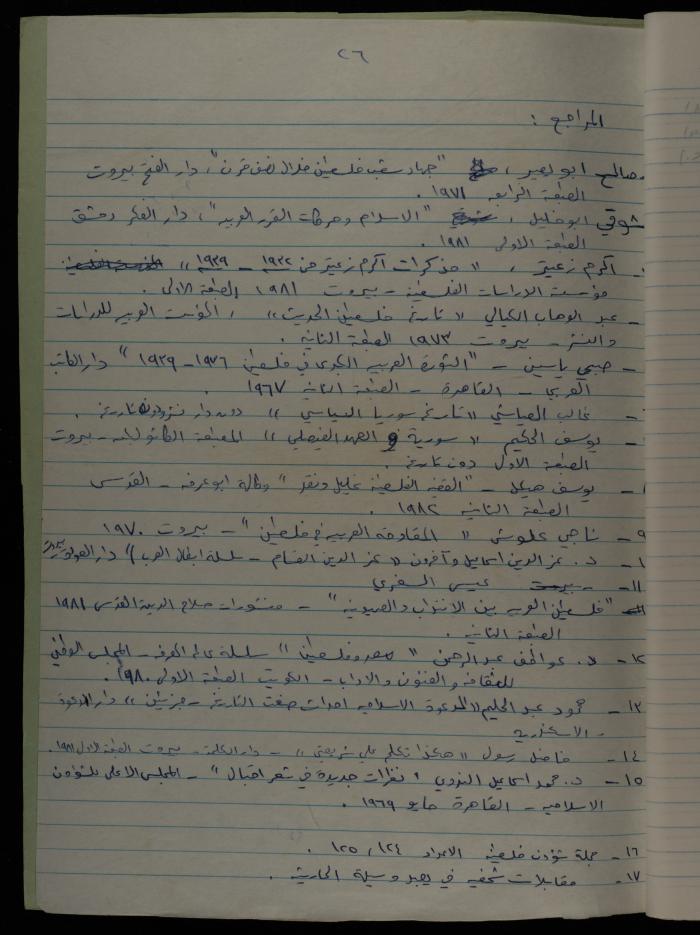 ٢٦
المراجع :
صالح ابو يصير ، "جهاد شعب فلسطين خلال نصف قرن" ، دار الفتح بيروت
الطبعة الرابعة ١٩٧١ .
شوقي ابو خليل ، "الاسلام وحركات التحرر العربيه" ، دار الفكر دمشق
الطبعة الاولى ١٩٨١ .
اكرم زعيتر ، "مذكرات اكرم زعيتر من ١٩٢٢ - ١٩٣٩"
مؤسسة الدراسات الفلسطينية - بيروت ١٩٨١ الطبعة الاولى .
- عبد الوهاب الكيالي "تاريخ فلسطين الحديث" ، المؤسسة العربيه للدراسات
والنشر - بيروت ١٩٧٣ الطبعة الثانيه .
- صبحي ياسين - "الثورة العربيه الكبرى في فلسطين ١٩٣٦ - ١٩٣٩" دار الكاتب
العربي - القاهرة - الطبعة الثانيه ١٩٦٧ .
- غالب العياشي "تاريخ سوريا السياسي" دون دار نشر ودون تاريخ .
- يوسف الحكيم "سورية و العهد الفيصلي" المطبعة الكاثوليكيه - بيروت
الطبعة الاولى دون تاريخ .
- يوسف هيكل - "القضيه الفلسطينيه تحليل ونقد" وكالة ابو عرفه - القدس
الطبعة الثانيه ١٩٨٢ .
٩ - ناجي علوش "المقاومة العربيه في فلسطين" - بيروت ١٩٧٠
١ - د. عز الدين اسماعيل وآخرون "عز الدين القسام - سلسلة ابطال العرب" دار العودة بيروت
١١ - عيسى السفري
"فلسطين العربيه بين الانتداب والصهيونيه" - منشورات صلاح الدين القدس ١٩٨١
الطبعة الثانيه .
١٢ - د. عواطف عبد الرحمن "مصر وفلسطين" سلسلة عالم المعرفه - المجلس الوطني
للثقافه والفنون والاداب - الكويت الطبعة الاولى ١٩٨٠ .
١٣ - محمود عبد الحليم "الدعوة الاسلاميه احداث صنعت التاريخ - جزئين" دار الدعوة
- الاسكندريه
١٤ - فاضل رسول "هكذا تكلم علي شريعتي" - دار الكلمة - بيروت الطبعة الاولى ١٩٨١ .
١٥ - د. محمد اسماعيل الندوي "نظرات جديدة في شعر اقبال" - المجلس الاعلى للشؤون
الاسلاميه - القاهرة مايو ١٩٦٩ .
١٦ - مجلة شؤون فلسطينيه الاعداد ١٢٤ ، ١٢٥ .
١٧ - مقابلات شخصيه في يعبد وسيلة الحارثيه .